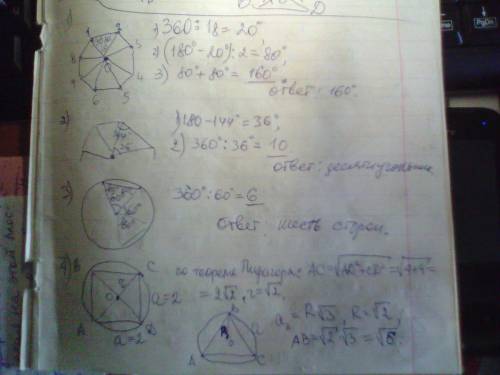 1)
1) 360° : 18 = 20°,
2) (180° - 20°) : 2 = 80°,
3) 80° + 80° = 160°
ответ: 160°.
2)
1) 180 - 144° = 36°,
2) 360° : 36° = 10
144°
36°
ответ: десятиугольник.
3)
360° : 60° = 6
ответ: шесть сторон.
4)
B C
O
a=2
A D
a=2
по теореме Пифагора: AC = √AD² + CD² = √4+4 =
= 2√2, r = √2,
B
a
O
A C
a₃ = R√3, R = √2,
AB = √2 · √3 = √6.